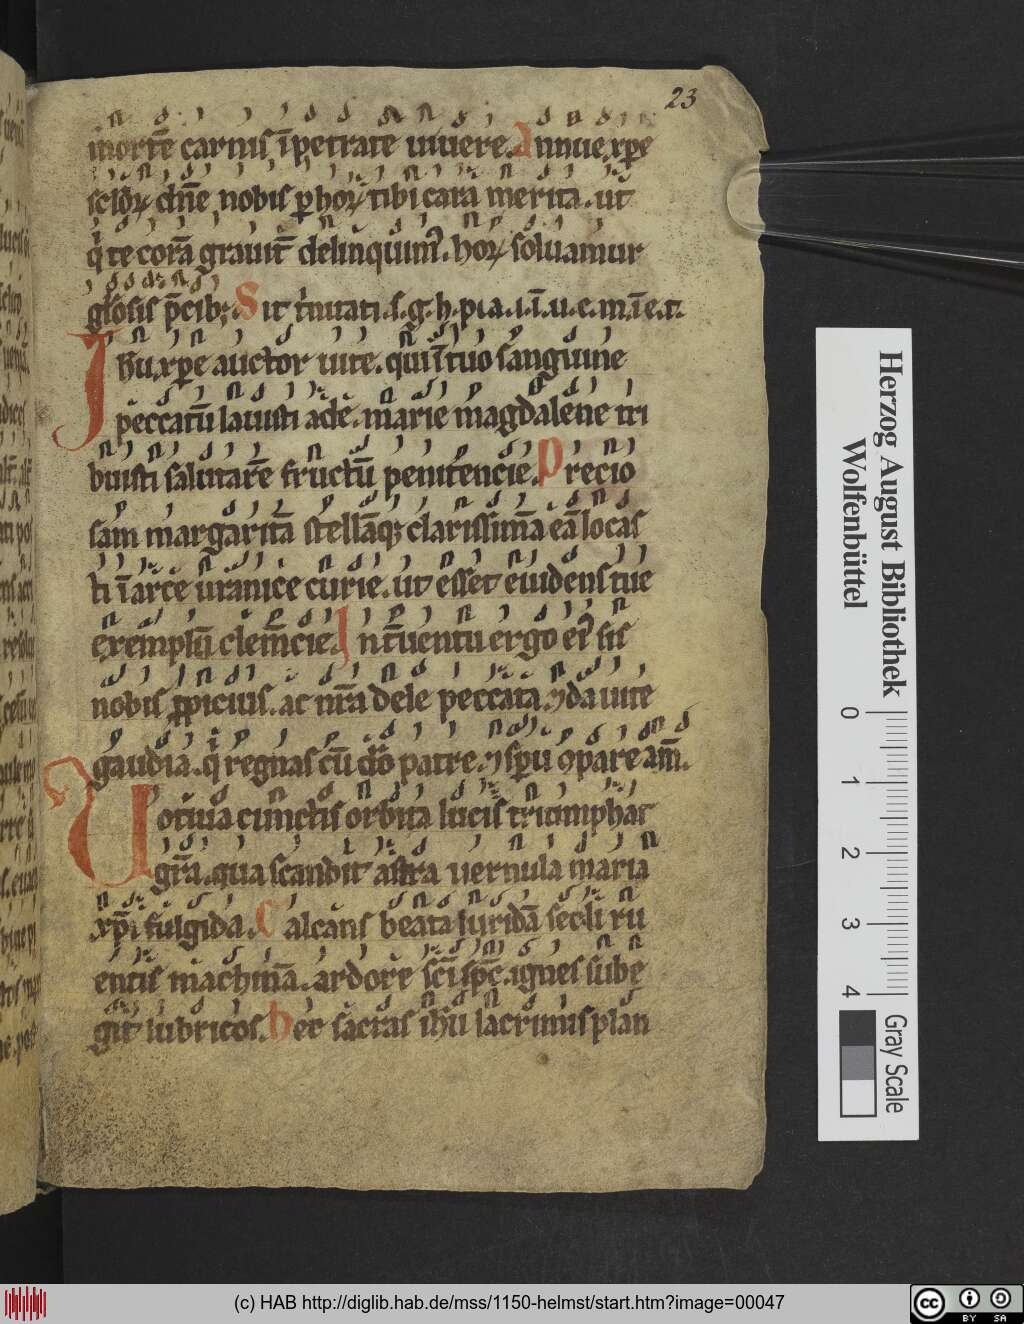 23
mortē carnis īpetrate uiuere. Annue xp̄e
sclo̅ꝝ dn̄e nobis ꝑ hoꝝ tibi cara merita. ut
q̇ te corā grauit̄ delinquim᷒. hoꝝ soluamur
gl̄osis p̄cib᷒. Sit
Ihu xp̄e auctor uite. qui ī tuo sanguine
peccatū lauisti ade. marie magdalene tri
buisti salutarē fructū penitēncie. Precio
sam margaritā stellāqꝫ clarissimā eā locas
ti ī arce uranice curie. ut esset euidens tue
exemplū clem̄cie. In t̄uentu ergo ei᷒ sis
nobis ꝓpicius. ac nr̄a dele peccata. ⁊ da uite
gaudia. q̇ regnas cū dō patre. ⁊ sp̄u ꝯpare am̄.
Uotiua cunctis orbita lucis triumphat
gr̄a. qua scandit astra uernula maria
xp̄i fulgida. Calcans beata luridā secli ru
entis machinā. ardore sc̄i sp̄c. ignes sube
git lubricos. Hec sacras ihu lacrimis plan
Herzog August Bibliothek
Wolfenbüttel
0 1 2 3 4
Gray Scale
(c) HAB http://diglib.hab.de/mss/1150-helmst/start.htm?image=00047
cc BY SA